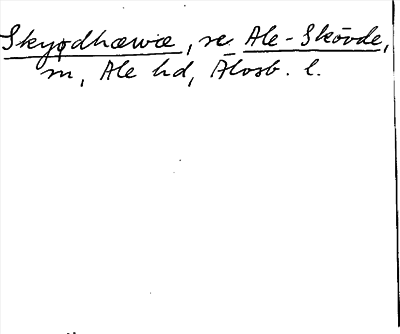 Skyødhæwæ, se Ale-Skövde,
m, Ale hd, Älvsb. l.